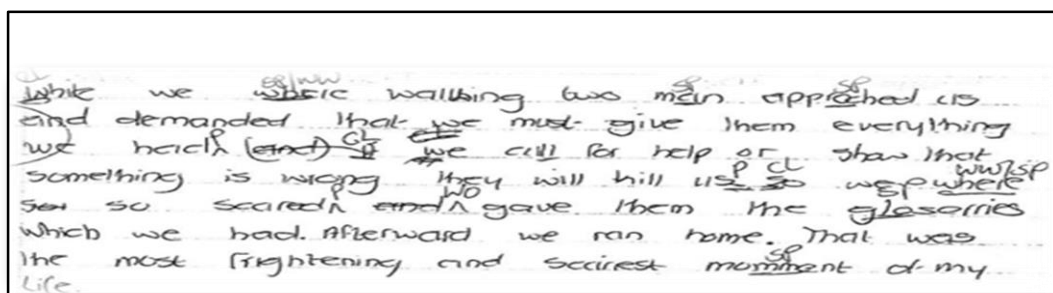 sp/ww sp sp
While we where walking two mein approched us
and demanded that we must give them everything
P CL
we had (and) If we call for help or show that
P CL ww/sp
something is wrong they will kill us so we where
P WO sp
so scared and gave them the glosarries
which we had. Afterward we ran home. That was
sp
the most frightening and scariest momment of my
Life.